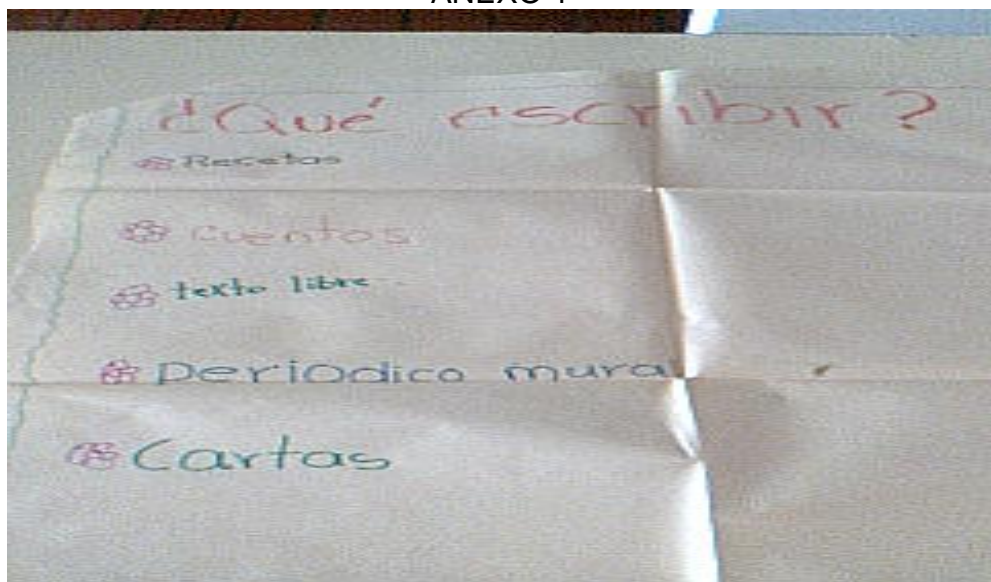 ¿Qué escribir?
Recetas
cuentos
texto libre
periodico mural
Cartas